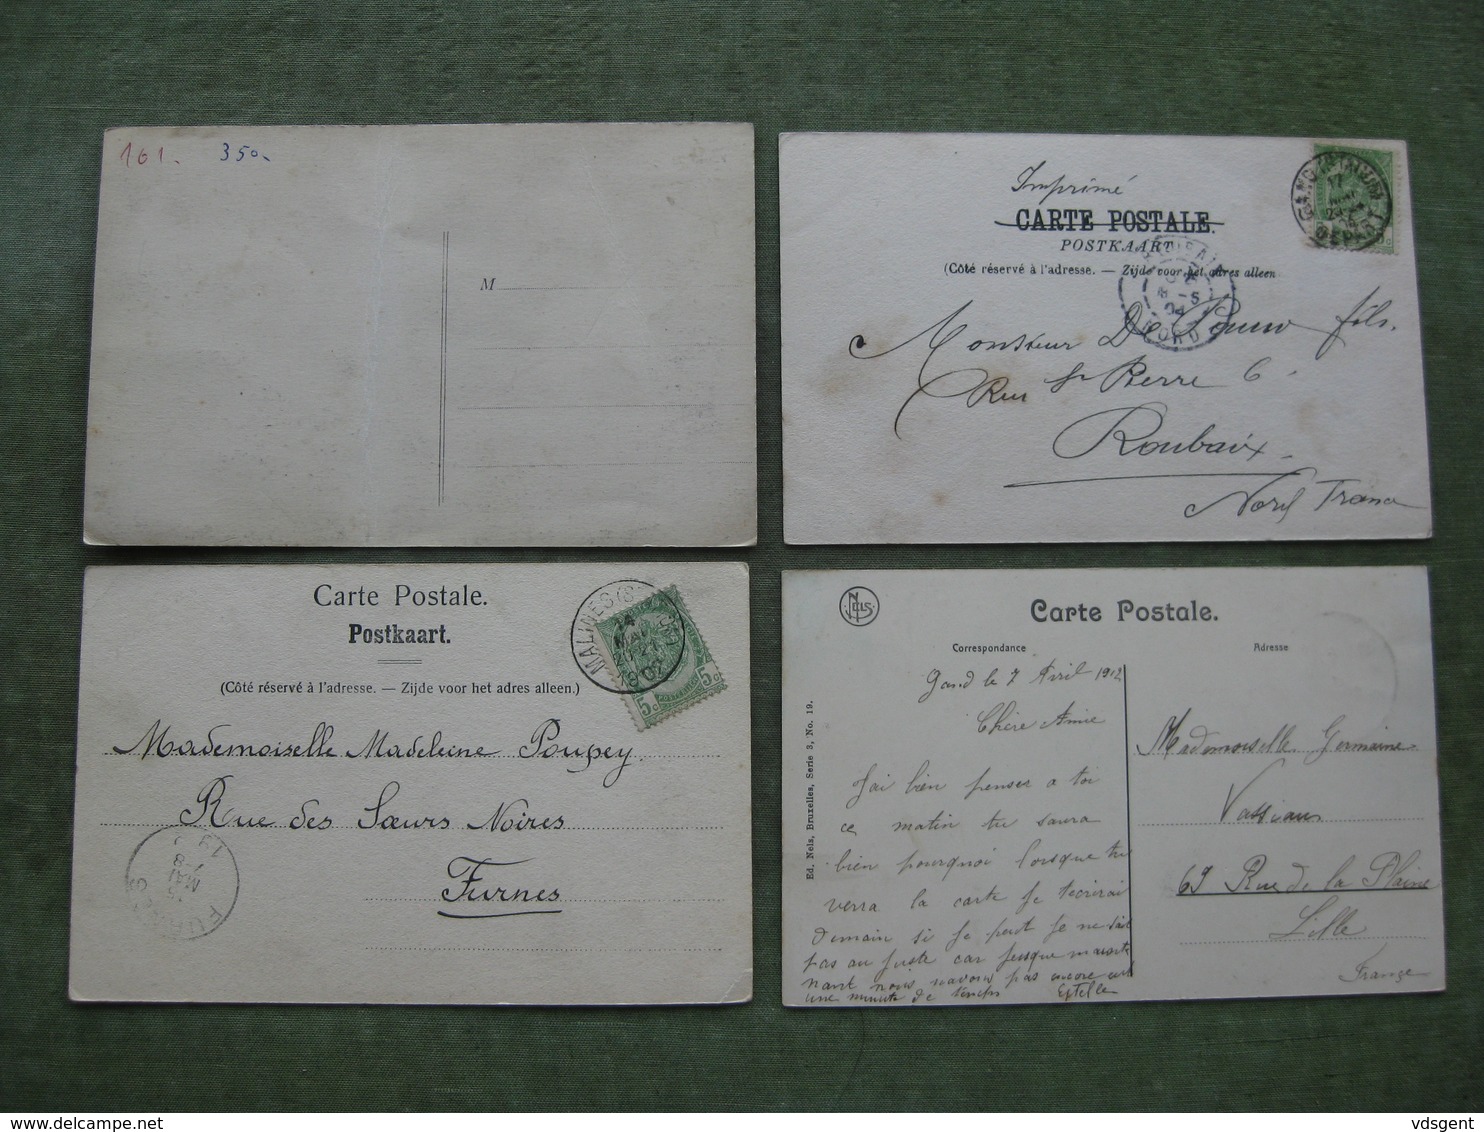 161. 350.
M
Imprimé
CARTE POSTALE.
POSTKAART
(Côté réservé à l'adresse. — Zijde voor het adres alleen
NORD
Monsieur De fils.
Rue St Pierre 6.
Roubaix.
Nord France
Carte Postale.
Postkaart.
(Côté réservé à l'adresse. — Zijde voor het adres alleen.)
MALINES (S
14
MAI
02
5c 5c
Mademoiselle Madeleine Poupey.
Rue des Sœurs Noires
Furnes
NELS
Carte Postale.
Correspondance Adresse
Ed. Nels, Bruxelles, Serie 3, No. 19.
Gand le 7 Avril 1912
Chère Amie
J'ai bien penser a toi
ce matin tu saura
bien pourquoi lorsque tu
verra la carte je t'ecrirai
Demain si je peut je ne sait
pas au juste car jusque mainte
nant nous n'avons pas encore eut
une minute de temps Estelle
Mademoiselle Germaine
69 Rue de la Plaine
Lille
France
vdsgent